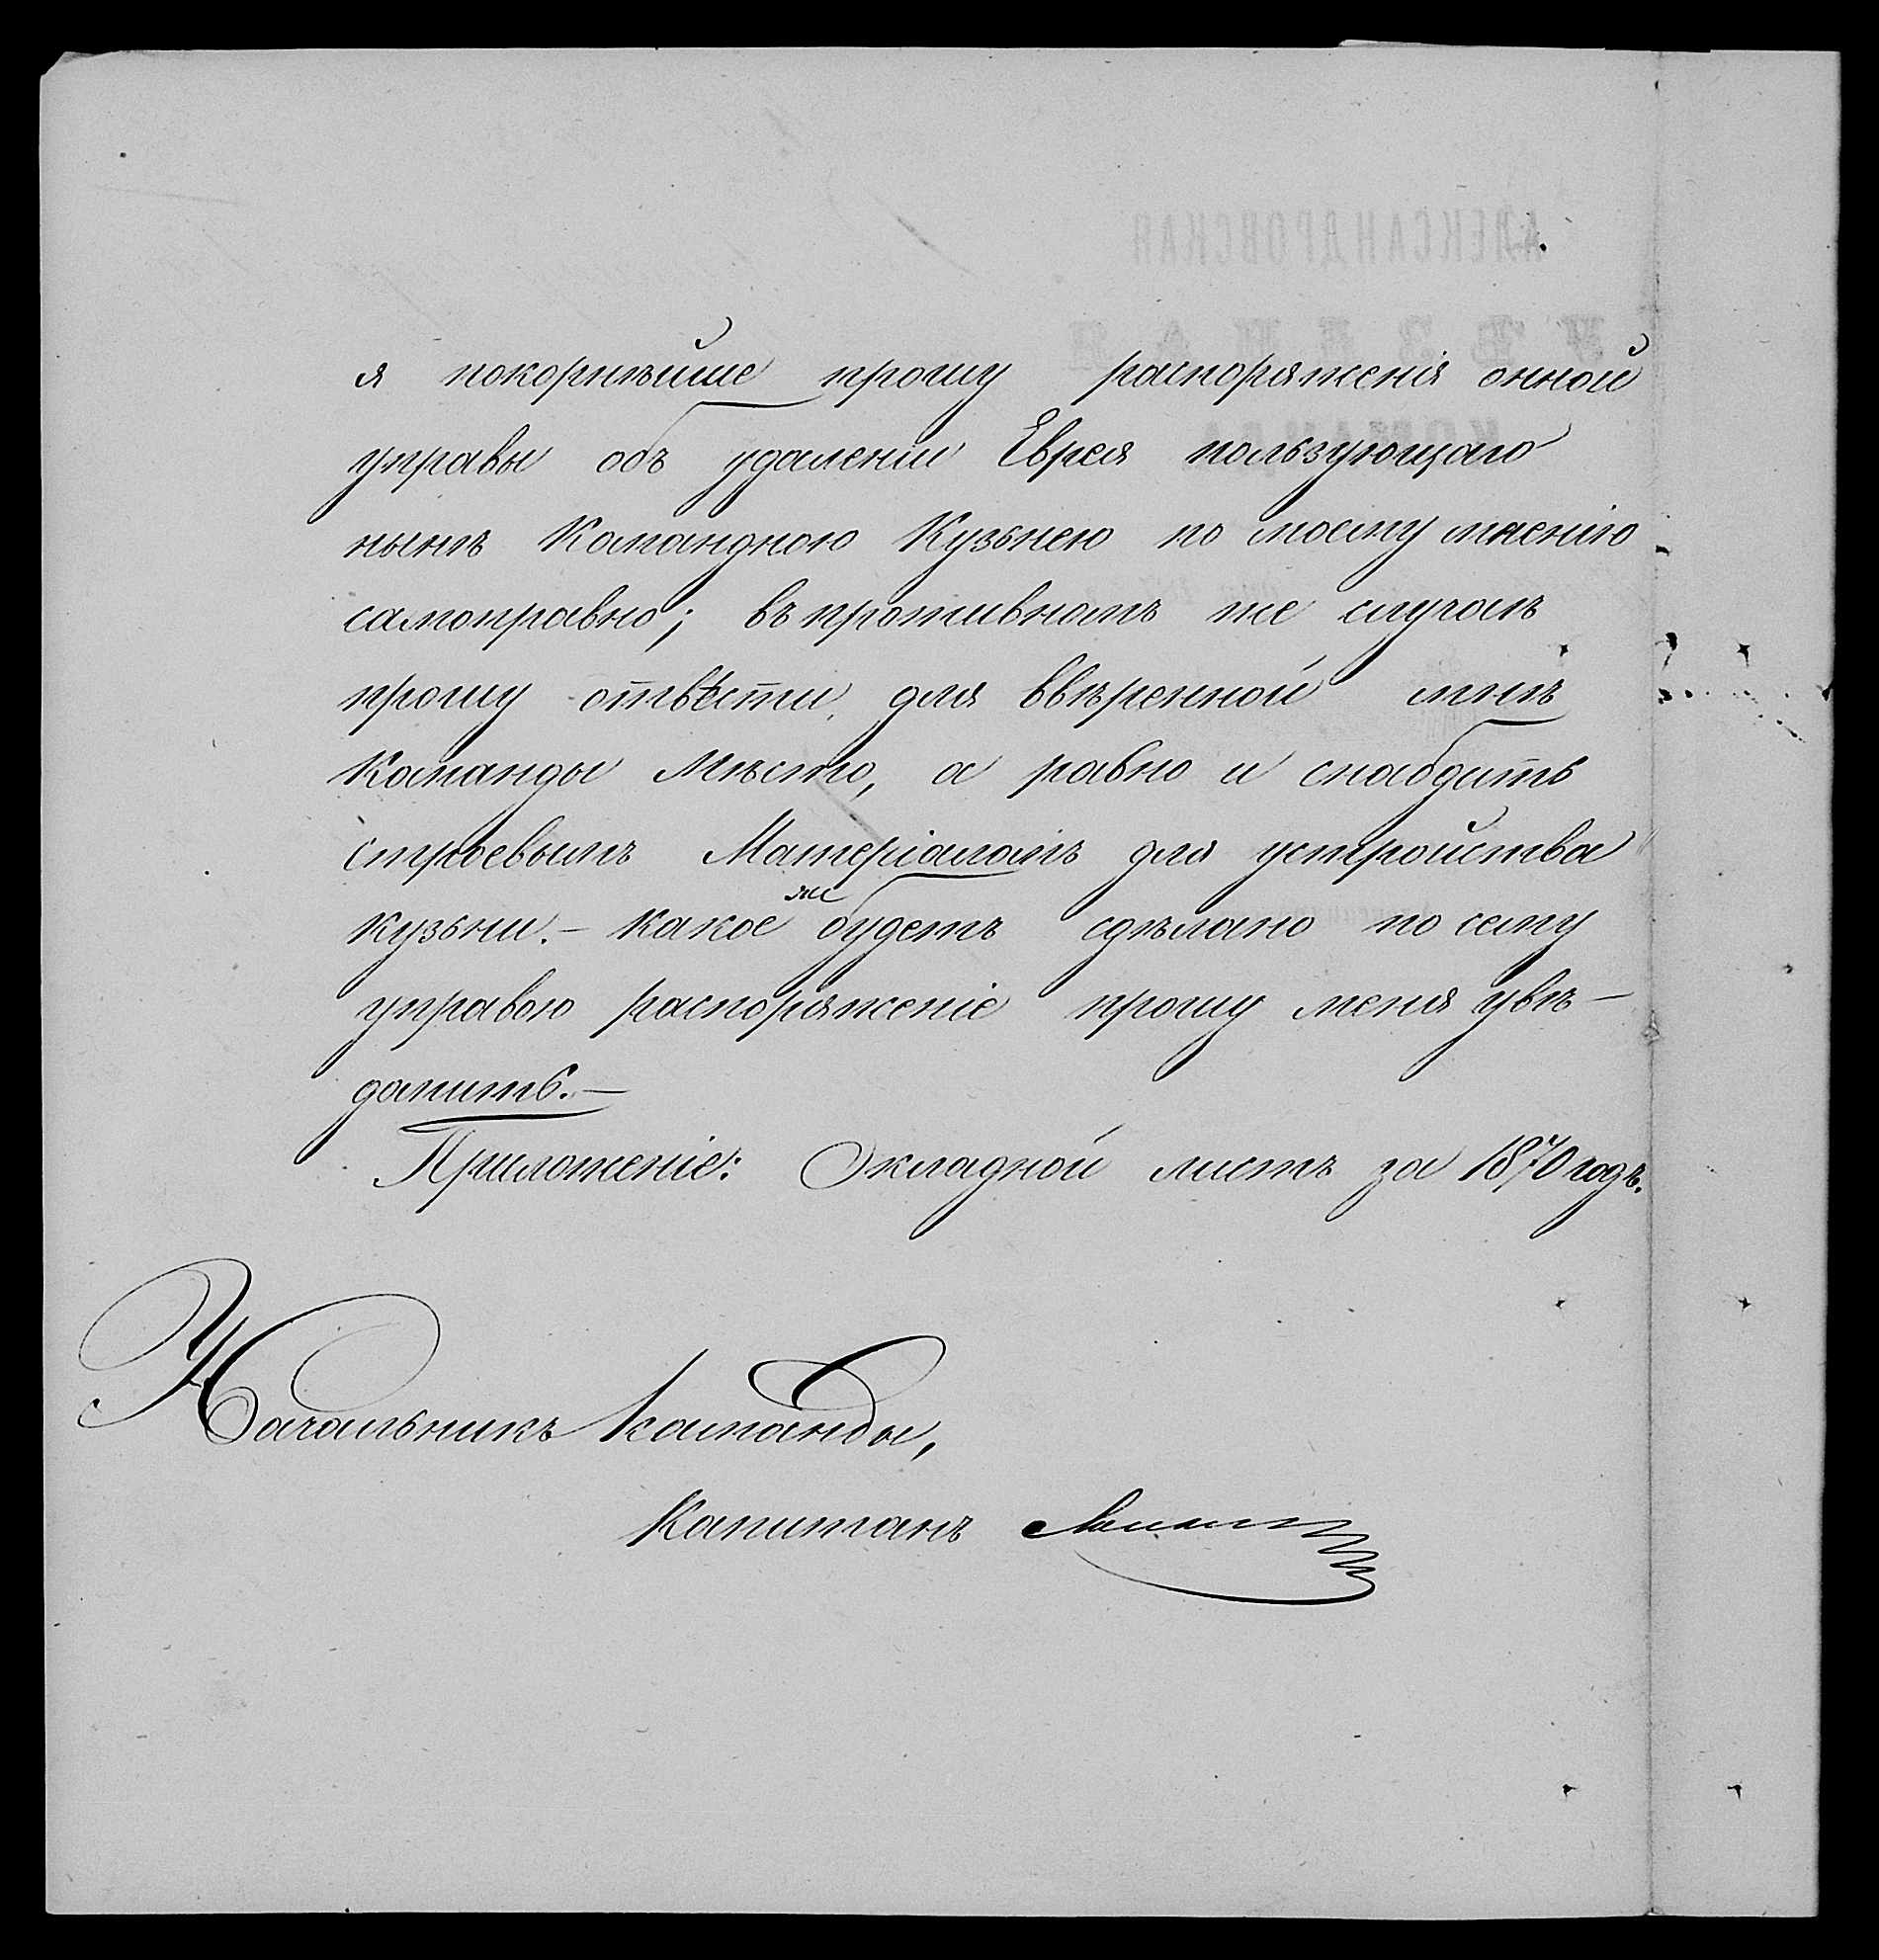 я покорнѣйше прошу распоряженія онной
управы объ удаленіи Еврея пользующаго
нынѣ Командною Кузьнею по моему мнению
самоправно; въ противномъ же случаѣ
прошу отвѣсти для ввѣренной мнѣ
Команды Мѣсто, а равно и снабдить
строевымъ Матеріаломъ для устройства
кузьни. – какое же будетъ сдѣлано по сему
управою распоряженіе прошу меня увѣ–
домить. –
Приложеніе: Окладной листъ за 1870 годъ.
Начальникъ Команды,
Капитанъ
АЛЕКСАНДРОВСКАЯ
УѢЗДНАЯ
КОМАНДА